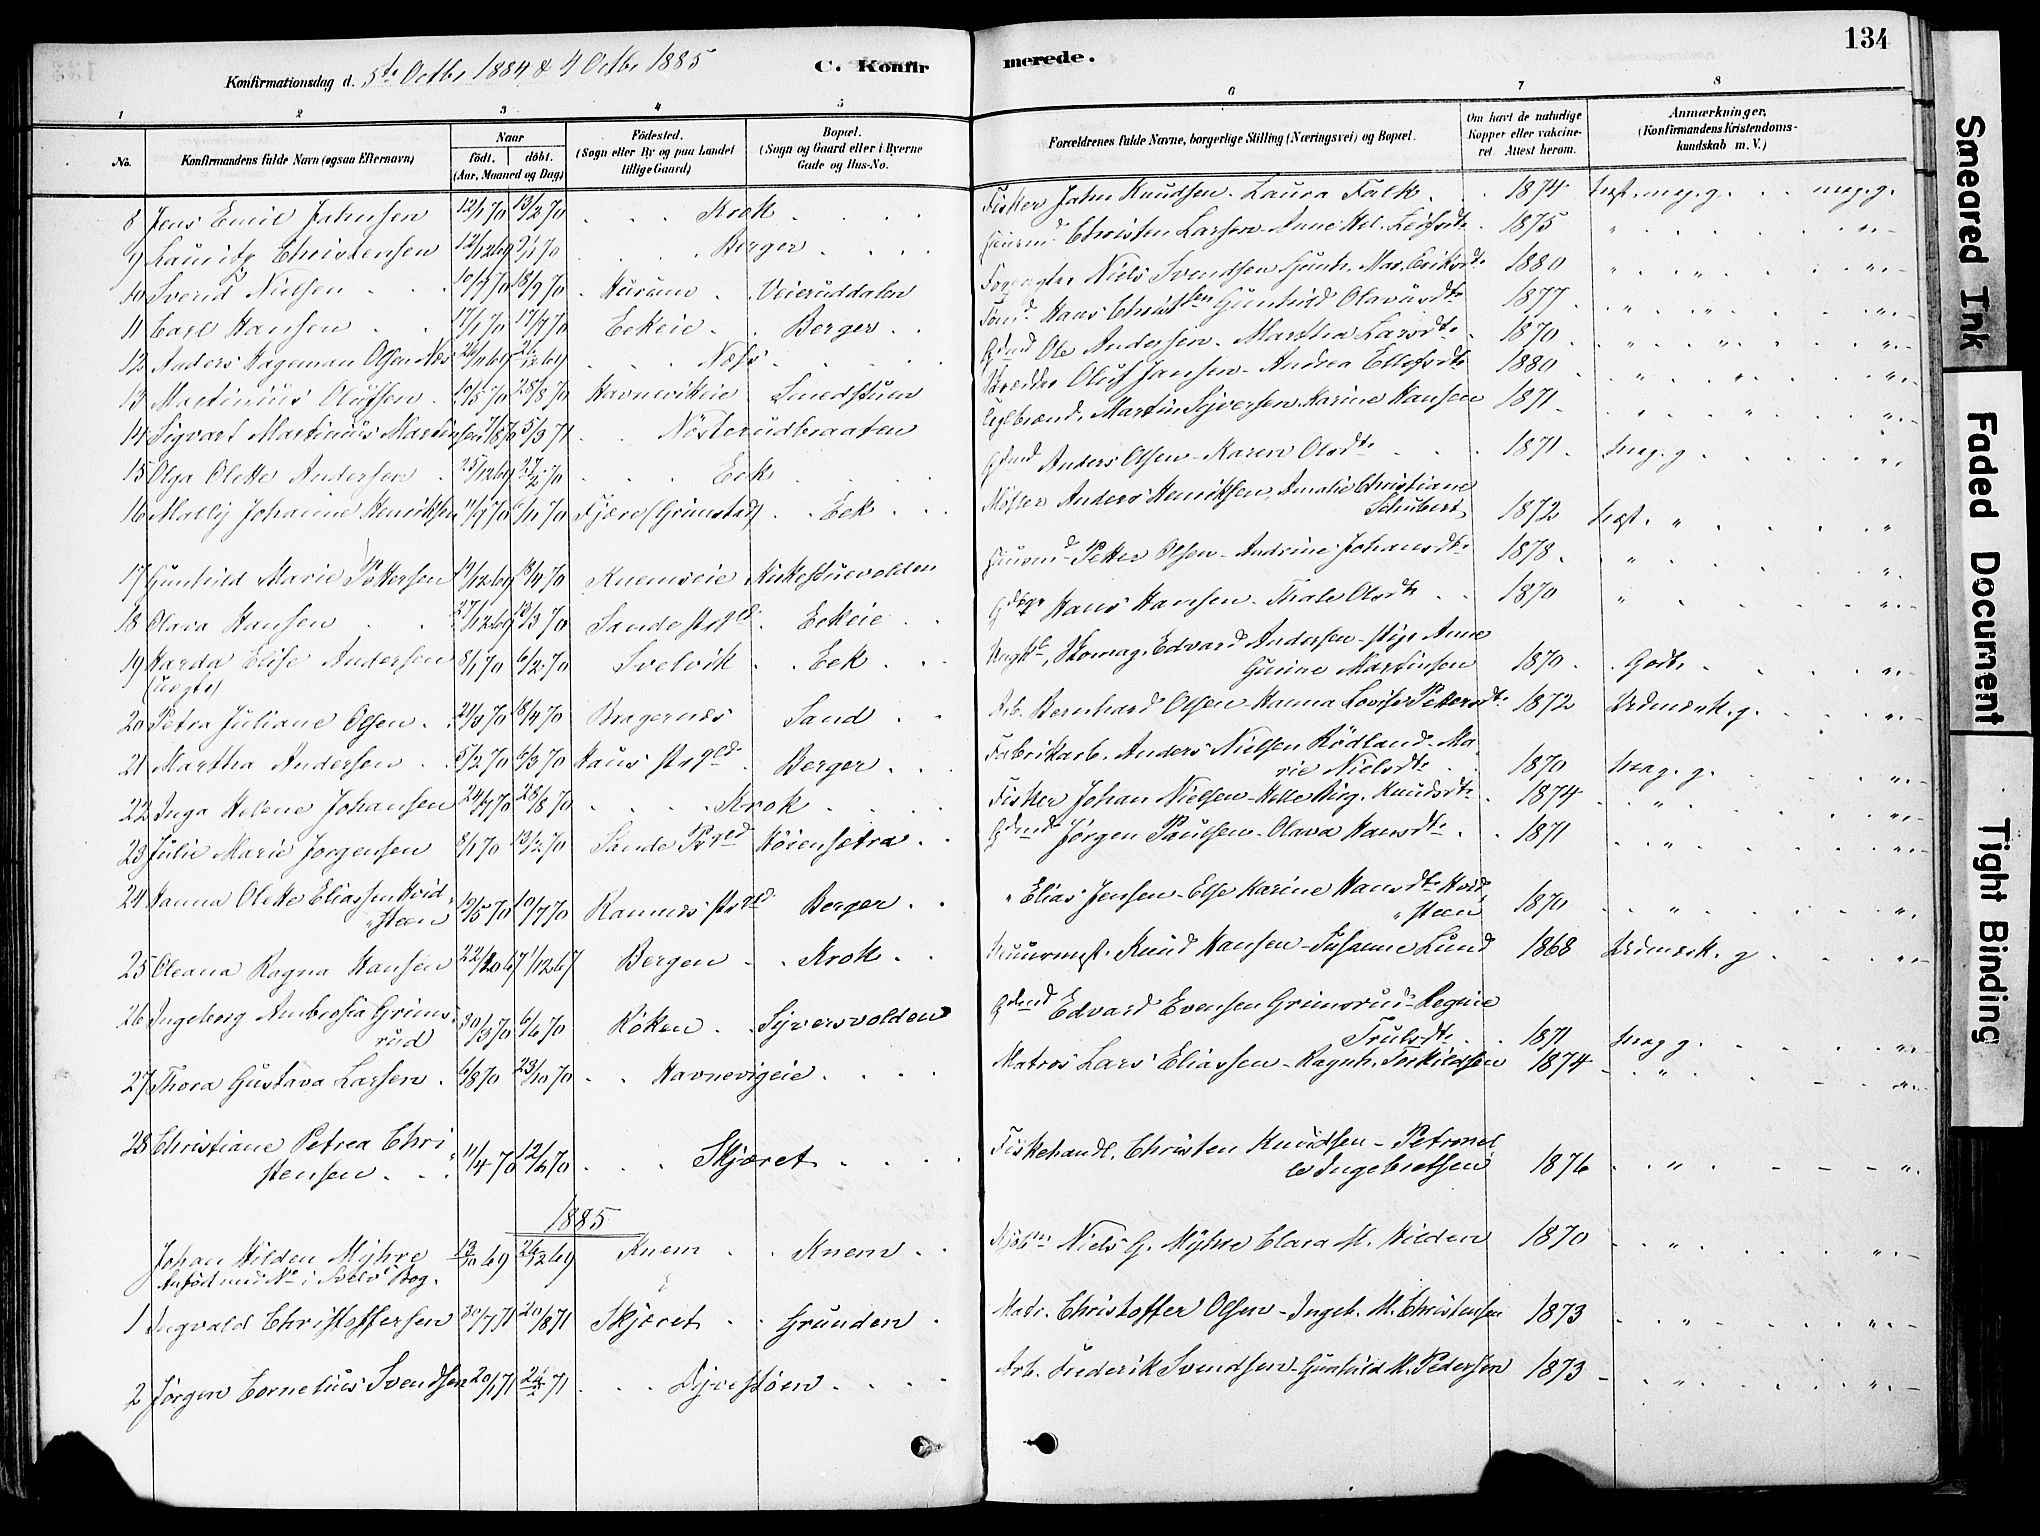 134
Konfirmationsdag d. 5te Octbr 1884 & 4 Octbr 1885
C. Konfir
merede.
1 2 3 4 5 6 7 8
No.
Konfirmandens fulde Navn (ogsaa Efternavn)
Naar
født. døbt.
(Aar, Maaned og Dag)
Fødested.
(Sogn eller By og paa Landet
tillige Gaard)
Bopæl.
(Sogn og Gaard eller i Byerne
Gade og Hus-No.
Forældrenes fulde Navne, borgerlige Stilling (Næringsvei) og Bopæl.
Om havt de naturlige
Kopper eller vakcine-
ret Attest herom.
Anmærkninger,
(Konfirmandens Kristendoms-
kundskab m. V.)
8 Jens Emil Jahnsen 12/1 70 13/2 70 Krok Fisker Jahn Knudsen - Laura Falk 1874 meg. g. meg. g.
9 Lauritz Christensen 12/12 69 2/1 70 Berger Christen Larsen - Anne Hel. Leifsdtr 1875
10 Svend Nielsen 10/7 70 18/9 70 Hurum Veieruddalen Niels Svendsen Gunh. Mar. Eriksdtr 1880
11 Carl Hansen 17/1 70 17/7 70 Eekeie Berger Hans Christsen Gunhild Olavusdtr 1877
12 Anders Hageman Olsen Næs 24/11 69 26/12 69 Næss Gdmd Ole Andersen - Martha Larsdtr 1870
13 Martinius Olufsen 10/5 70 28/8 70 Havnevikeie Smedstuen Oluf Jansen - Andrea Ellefsdtr 1880
14 Sigvart Martinius Martinsen 7/8 70 5/3 71 Nøsterudbraaten Martin Syversen Karine Hansen 1871
15 Olga Olette Andersen 25/12 69 27/2 70 Eek Gdmd Anders Olsen - Karen Olsdtr 1871 meg. g.
16 Mally Johanne Henriksen 11/9 70 6/11 70 Fjære (Grimstad) Eek Møller Anders Henriksen, Amalie Christiane
Schubert 1872
17 Gunhild Marie Pettersen 19/12 69 18/4 70 Knemseie Kirkestuevolden Petter Olsen - Andrine Johansdtr 1878
18 Olava Hansen 27/12 69 13/3 70 Sande Prgld Eekeie Hans Hansen - Thale Olsdtr 1870
19 Harda Elise Andersen 8/1 70 6/2 70 Svelvik Eek Ungk., Skomag. Edvard Andersen - pige Anne
(uægte) Gurine Martinsen 1870 Godt
20 Petra Juliane Olsen 21/3 70 18/4 70 Bragernes Sand Arb. Bernhard Olsen - Hanna Lovise Pettersdtr 1872 Udmærk. g.
21 Martha Andersen 5/2 70 6/3 70 Haus Prgld Berger Fabrikarb. Anders Nielsen Rødland - Ma-
rie Nielsdtr 1870 meg. g.
22 Inga Helene Johansen 24/7 70 28/8 70 Krok Fisker Johan Nielsen - Helle Birg. Knudsdtr 1874
23 Julie Marie Jørgensen 8/1 70 13/2 70 Sande Prgld Hørensetra Gdmd Jørgen Paulsen - Olava Hansdtr 1871
24 Hanna Olette Eliassen Hvid-
steen 19/5 70 10/7 70 Rannes Prgld Berger " Elias Jensen - Else Karine Hansdtr Hvid-
steen 1870
25 Oleana Ragna Hansen 22/10 67 1/12 67 Bergen Krok Knud Hansen - Susanne Lund 1868 Udmærk. g
26 Ingeborg Ambrosia Grims-
rud 30/3 70 6/6 70 Røken Syversvolden Gdmd Edvard Evensen Grimsrud - Regine
Trulsdtr 1871 meg g.
27 Thora Gustava Larsen 6/8 70 23/10 70 Havnevigeie Matros Lars Eliassen - Ragnh. Terkildsen 1874
28 Christiane Petrea Chri-
stensen 11/4 70 12/6 70 Skjæret Fiskehandl. Christen Knudsen - Petronel
le Ingebretsen 1876
1885
Johan Hilden Myhre 13/10 69 26/12 69 Knem Knem Niels G. Myhre Clara M. Hilden 1870
Anført med No i Svelv. Bog.
1 Ingvald Christoffersen 30/7 71 20/8 71 Skjæret Grunden Matr. Christoffer Olsen - Ingeb. M. Christensen 1873
2 Jørgen Cornelius Svendsen 20/1 71 71 Dyrestøen Arb. Frederik Svendsen - Gunhild M. Pedersen 1873
Smeared Ink
Faded Document
Tight Binding